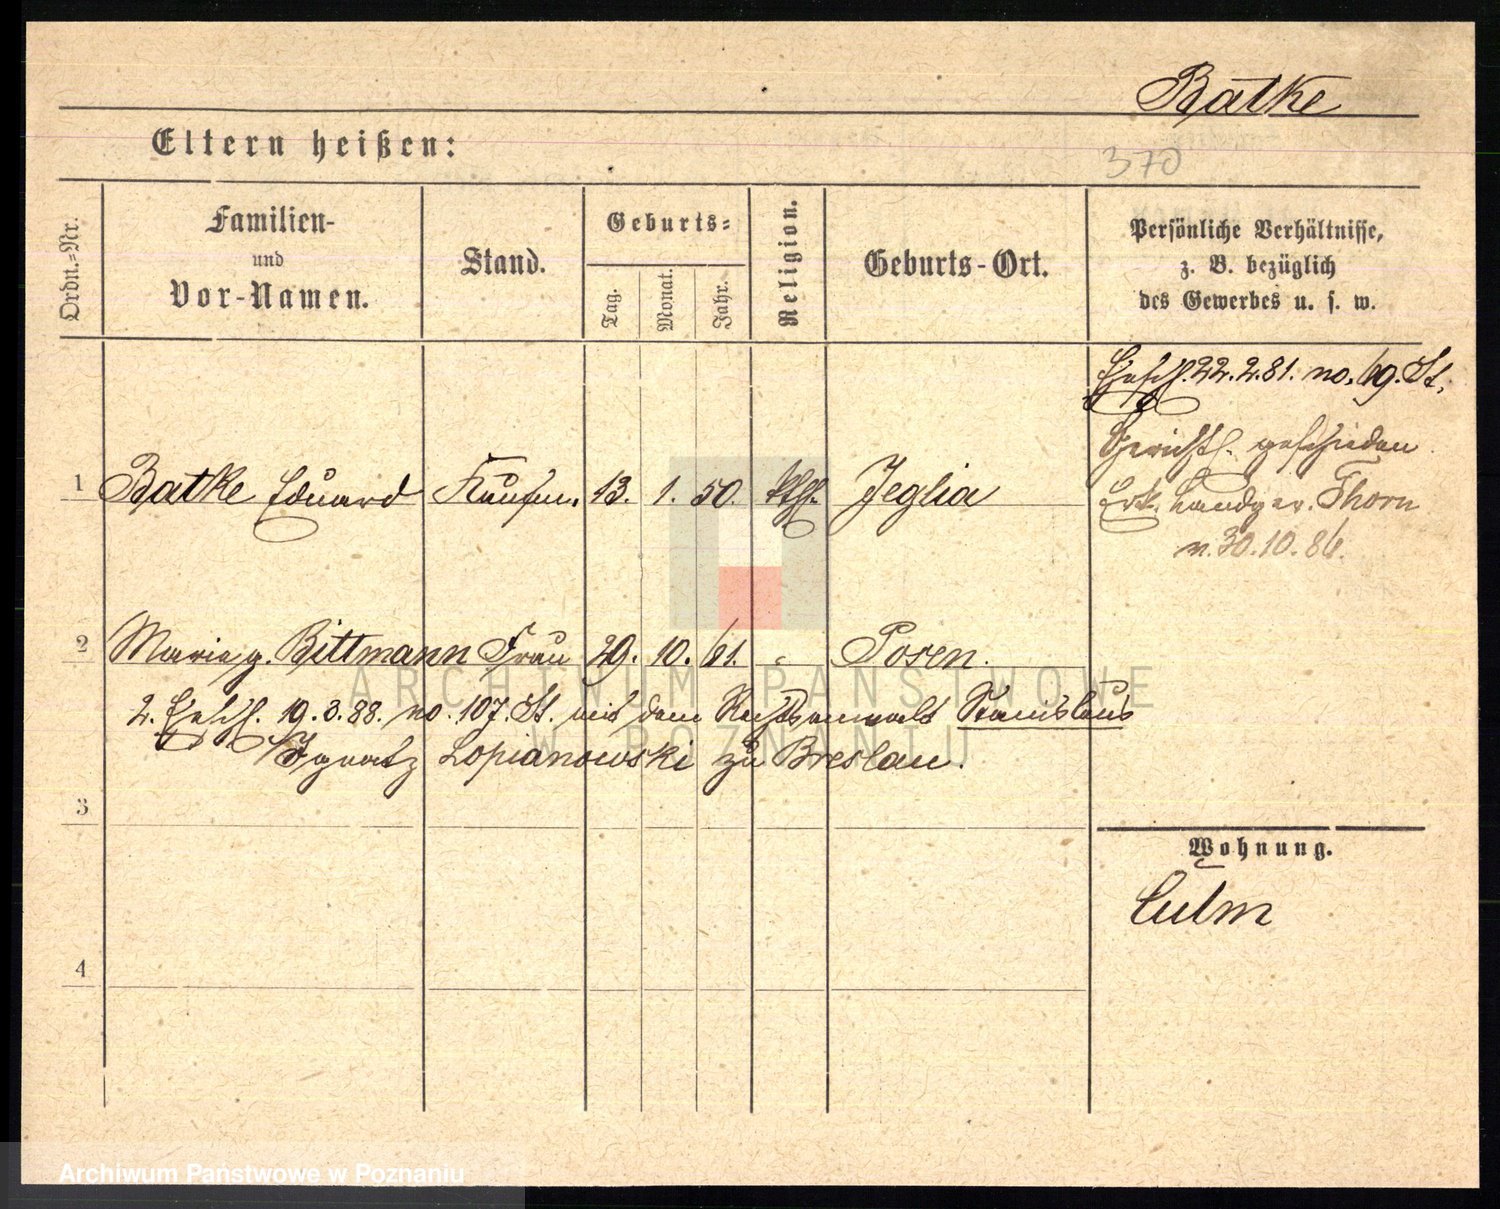 Batke
Eltern heißen:
370
Ordn.-Nr.
Familien-
und
Vor-Namen.
Stand.
Geburts-
Tag.
Monat.
Jahr.
Religion.
Geburts-Ort.
Persönliche Verhältnisse,
z. B. bezüglich
des Gewerbes u. s. w.
Ehesch. 22.2.81. no. 69. St.
Gerichtl. geschieden
Erk. Landger. Thorn
v. 30.10.86.
1 Batke Eduard Kaufm. 13. 1. 50. kth. Jeglia
2 Marie g. Bittmann Frau 29. 10. 61. " Posen.
2. Ehesch. 19.3.88. no. 107. St. mit dem Rechtsanwalt Stanislaus
Ignatz Lopianowski zu Breslau.
3
4
Wohnung.
Culm
ARCHIWUM PAŃSTWOWE
W POZNANIU
Archiwum Państwowe w Poznaniu